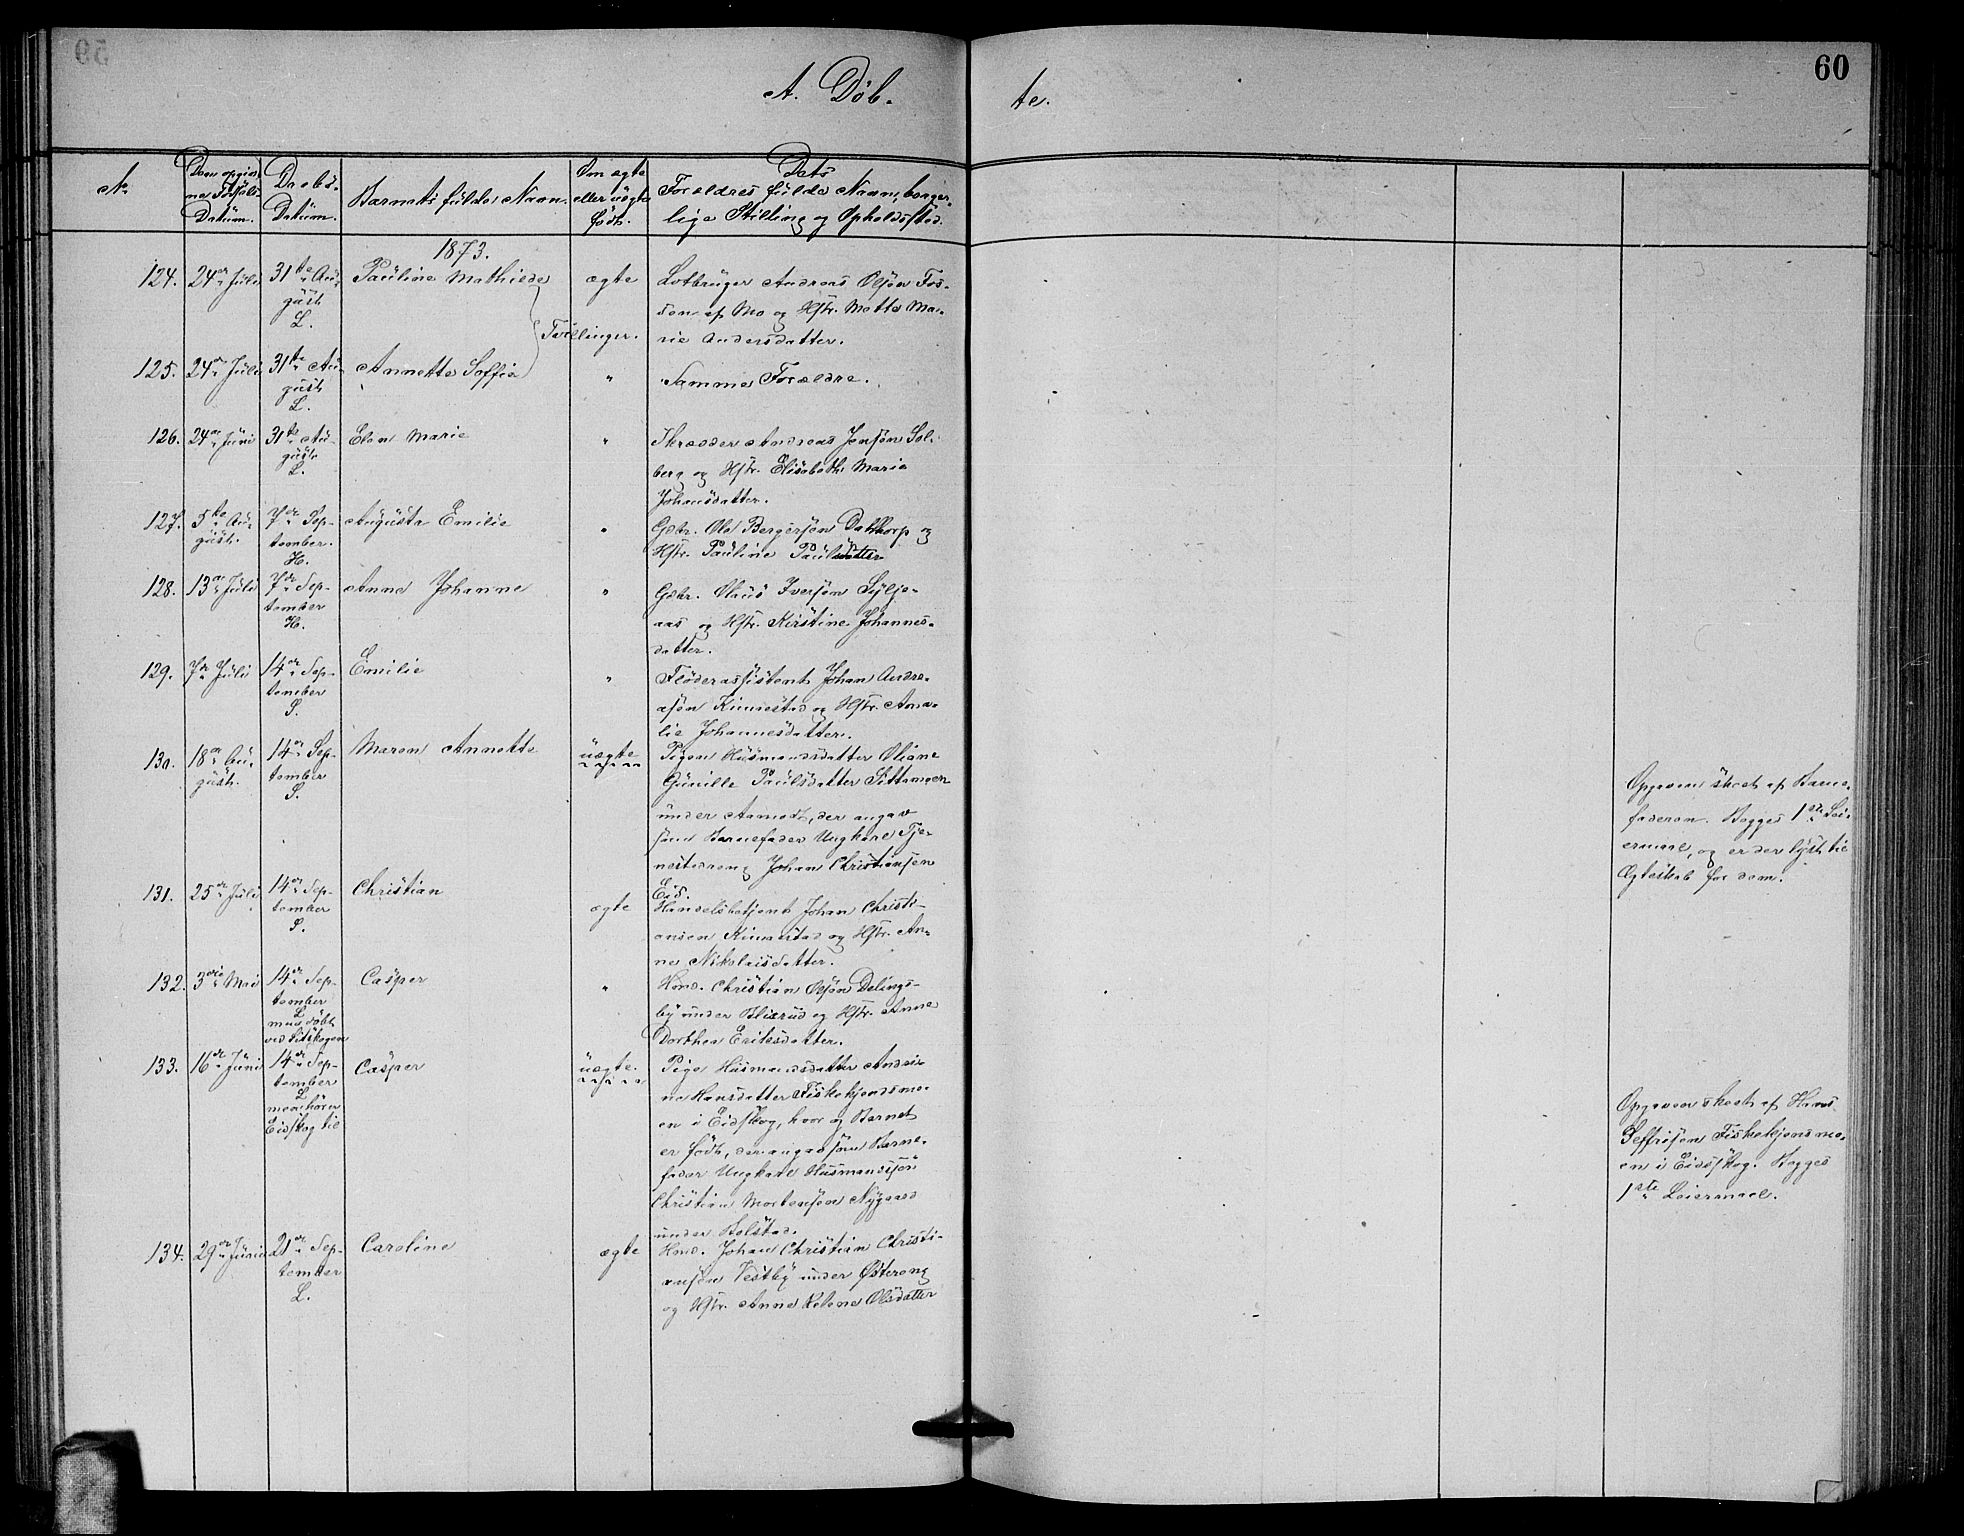 59
60
A. Døb-
te.
No
Den opgiv-
ne Fødsels-
Datum.
Daabs-
Datum.
Barnets fulde Navn.
Om ægte
eller uægte
født.
Dets
Forældres fulde Navn, borger-
lige Stilling og Opholdssted.
1873.
124.
24de Juli
31te Au-
gust
L.
Pauline Mathilde
ægte
Lotbruger Andreas Olsøn Fos-
sen af Mo og Hstr. Mette Ma-
rie Andersdatter.
Tvillinger.
125.
24de Juli
31te Au-
gust
L.
Annette Soffie
"
Samme Forældre.
126.
24de Juni
31te Au-
gust
L.
Elen Marie
"
Skrædder Andreas Jensøn Sol-
berg og Hstr. Elisabeth Marie
Johansdatter.
127.
5te Au-
gust.
7de Sep-
tember.
H.
Augusta Emilie
"
Gbr. Ole Bergersøn Dahltorp og
Hstr. Pauline Paulsdatter
128.
13de Juli
7de Sep-
tember
H.
Anne Johanne
"
Gbr. Olaus Iversøn Sylju-
aas og Hstr. Kirstine Johannes-
datter.
129.
7de Juli
14de Sep-
tember
S.
Emilie
"
Fløderassistent Johan Andre-
asøn Kinnestad og Hstr. Ama-
lie Johannesdatter.
130.
18de Au-
gust.
14de Sep-
tember
S.
Maren Annette
uægte
Pigen Husmandsdatter Oliane
Gunille Paulsdatter Sittamoen
under Aamodt, der angav
som Barnefader Ungkarl Tje-
nestedreng Johan Christiansen
Eid.
Opgaven skeet af Barne-
faderen. Begges 1ste Lei-
ermaal, og er der lyst til
Ægteskab for dem.
131.
25de Juli
14de Sep-
tember
S.
Christian
ægte
Handelsbetjent Johan Christi-
ansen Kinnestad og Hstr. An-
ne Nikolaisdatter.
132.
3die Mai
14de Sep-
tember
L
men døbt
ved Eidskogen
Casper
"
Hmd. Christian Olsøn Delings-
by under Blixrud og Hstr. Anne
Dorthea Eriksdatter.
133.
16de Juni
14de Sep-
tember
L
men hører
Eidskog til
Casper
uægte.
Pige Husmandsdatter Andri-
ne Hansdatter Fiskekjendsmo-
en i Eidskog, hvor og Barnet
er født, der angav som Barne-
fader Ungkarl Husmandssøn
Christian Mortensøn Nygaard
under Bolstad.
Opgaven skeet af Hans
Geffrisøn Fiskekjensmo-
en i Eidsskog. Begges
1ste Leiermaal.
134.
29de Juni
21de Sep-
tember
L.
Caroline
ægte
Hmd. Johan Christian Christi-
ansøn Vestby under Østereng
og Hstr. Anne Helene Olsdatter